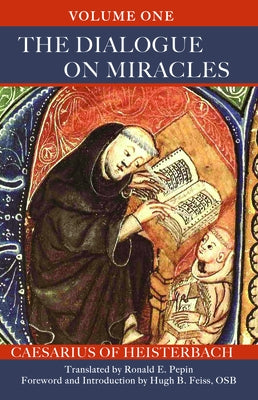 VOLUME ONE
THE DIALOGUE
ON MIRACLES
CAESARIUS OF HEISTERBACH
Translated by Ronald E. Pepin
Foreword and Introduction by Hugh B. Feiss, OSB